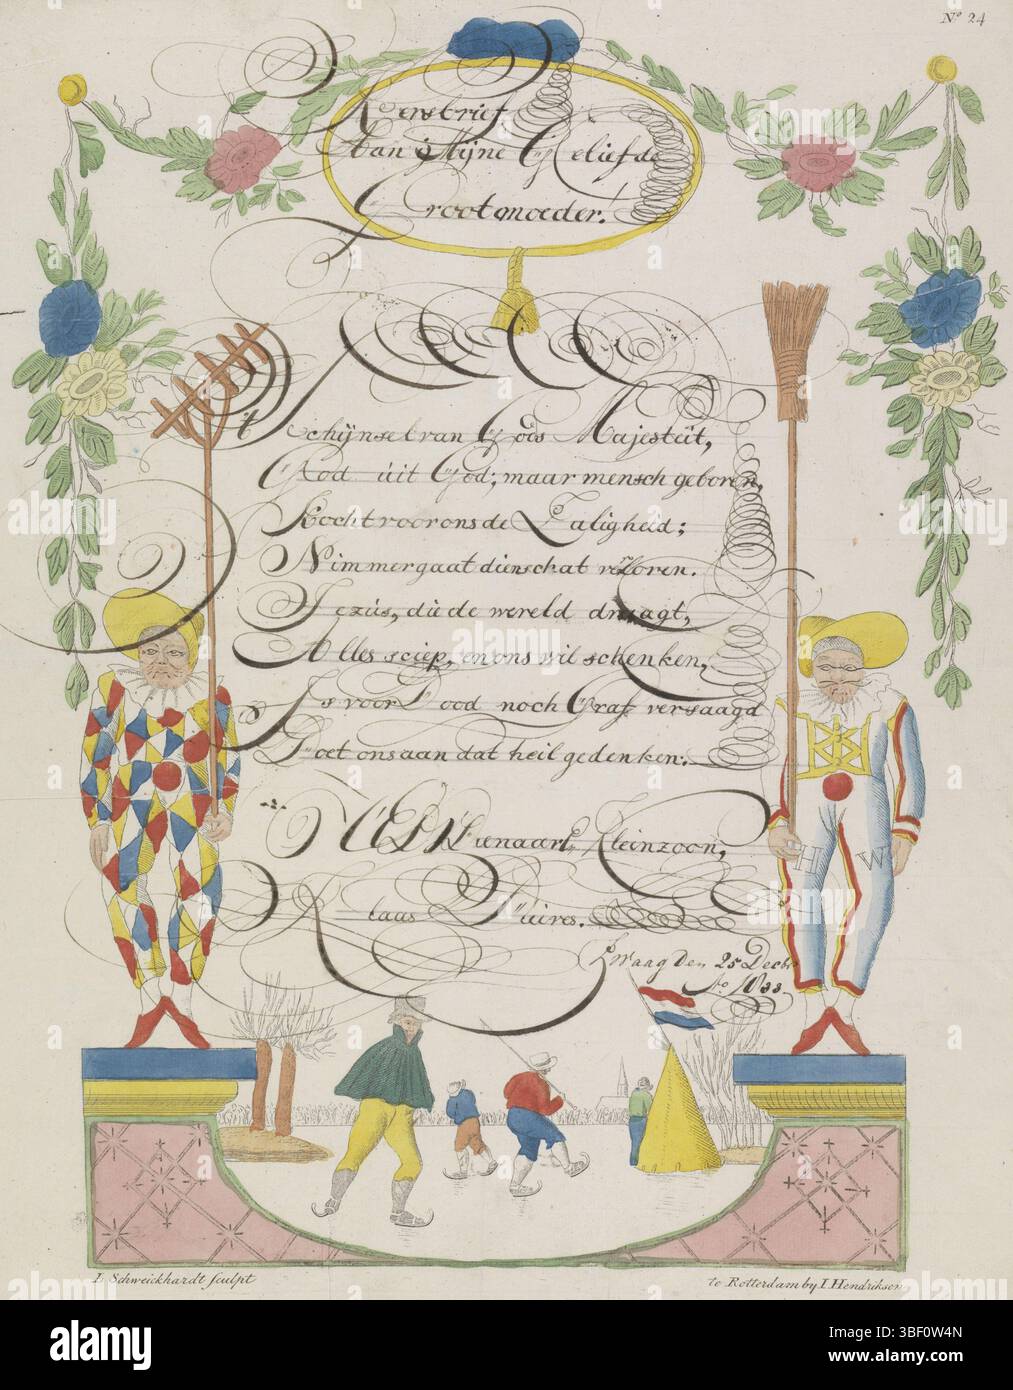 No 24
Kerstbrief
Aan Mijne Geliefde
Grootmoeder.
't Schijnsel van Gods Majesteit,
God uit God; maar mensch geboren,
Kocht voor ons de Zaligheid;
Nimmer gaat dien schat verloren.
Jezus, die de wereld draagt,
Alles sciep, en ons wil schenken,
Is voor Dood noch Graf versaagd
Doet ons aan dat heil gedenken.
UED Dienaar, Kleinzoon,
Klaas
Zwaag Den 25 Decbr
Ao 1833
H W
I. Schweickhardt sculpt
te Rotterdam by I. Hendriksen
alamy
Image ID: 3BF0W4N
www.alamy.com